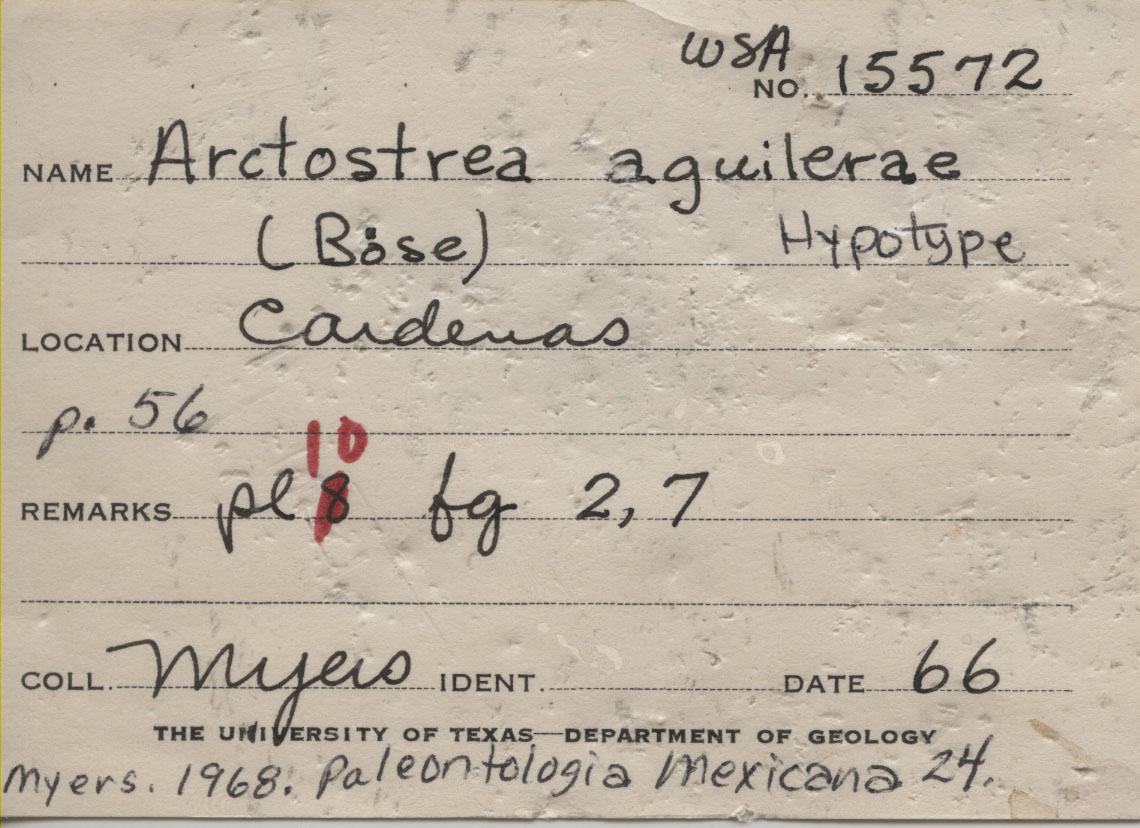 WSA
NO. 15572
NAME Arctostrea aguilerae
(Böse) Hypotype
LOCATION Cardenas
p. 56
10
REMARKS pl 8 fg 2, 7
COLL. Myers IDENT. DATE 66
THE UNIVERSITY OF TEXAS—DEPARTMENT OF GEOLOGY
Myers. 1968. Paleontologia Mexicana 24.